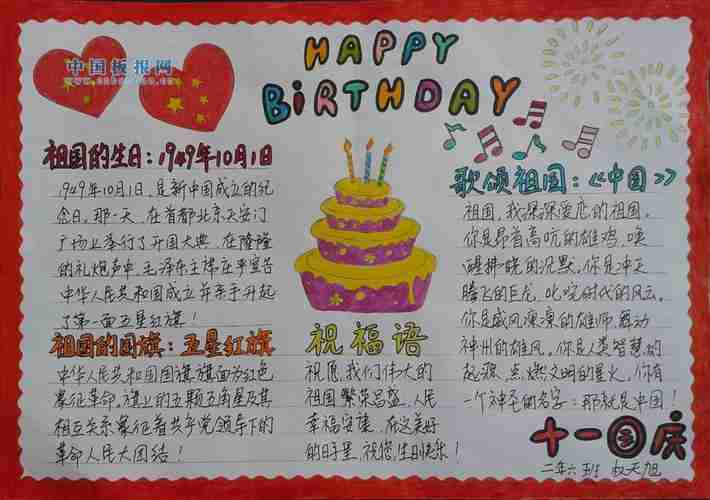 HAPPY
BiRTHDAY
中国板报网
祖国的生日：1949年10月1日
1949年10月1日，是新中国成立的纪
念日。那一天，在首都北京天安门
广场上举行了开国大典，在隆隆
的礼炮声中，毛泽东主席庄严宣告
中华人民共和国成立并亲手升起
了第一面五星红旗！
祖国的国旗：五星红旗
中华人民共和国国旗旗面为红色
象征革命。旗上的五颗五角星及其
相互关系象征着共产党领导下的
革命人民大团结！
祝福语
祝愿，我们伟大的
祖国繁荣昌盛，人民
幸福安康，在这美好
的日子里，祝您，生日快乐！
歌颂祖国：《中国》
祖国，我深深爱恋的祖国。
你是昂首高吭的雄鸡，唤
醒拂晓的沉默。你是冲天
腾飞的巨龙，叱咤时代的风云。
你是威风凛凛的雄师，舞动
神州的雄风。你是人类智慧的
起源，点燃文明的星火，你有
一个神圣的名字：那就是中国！
十一国庆
二年六班 权天旭